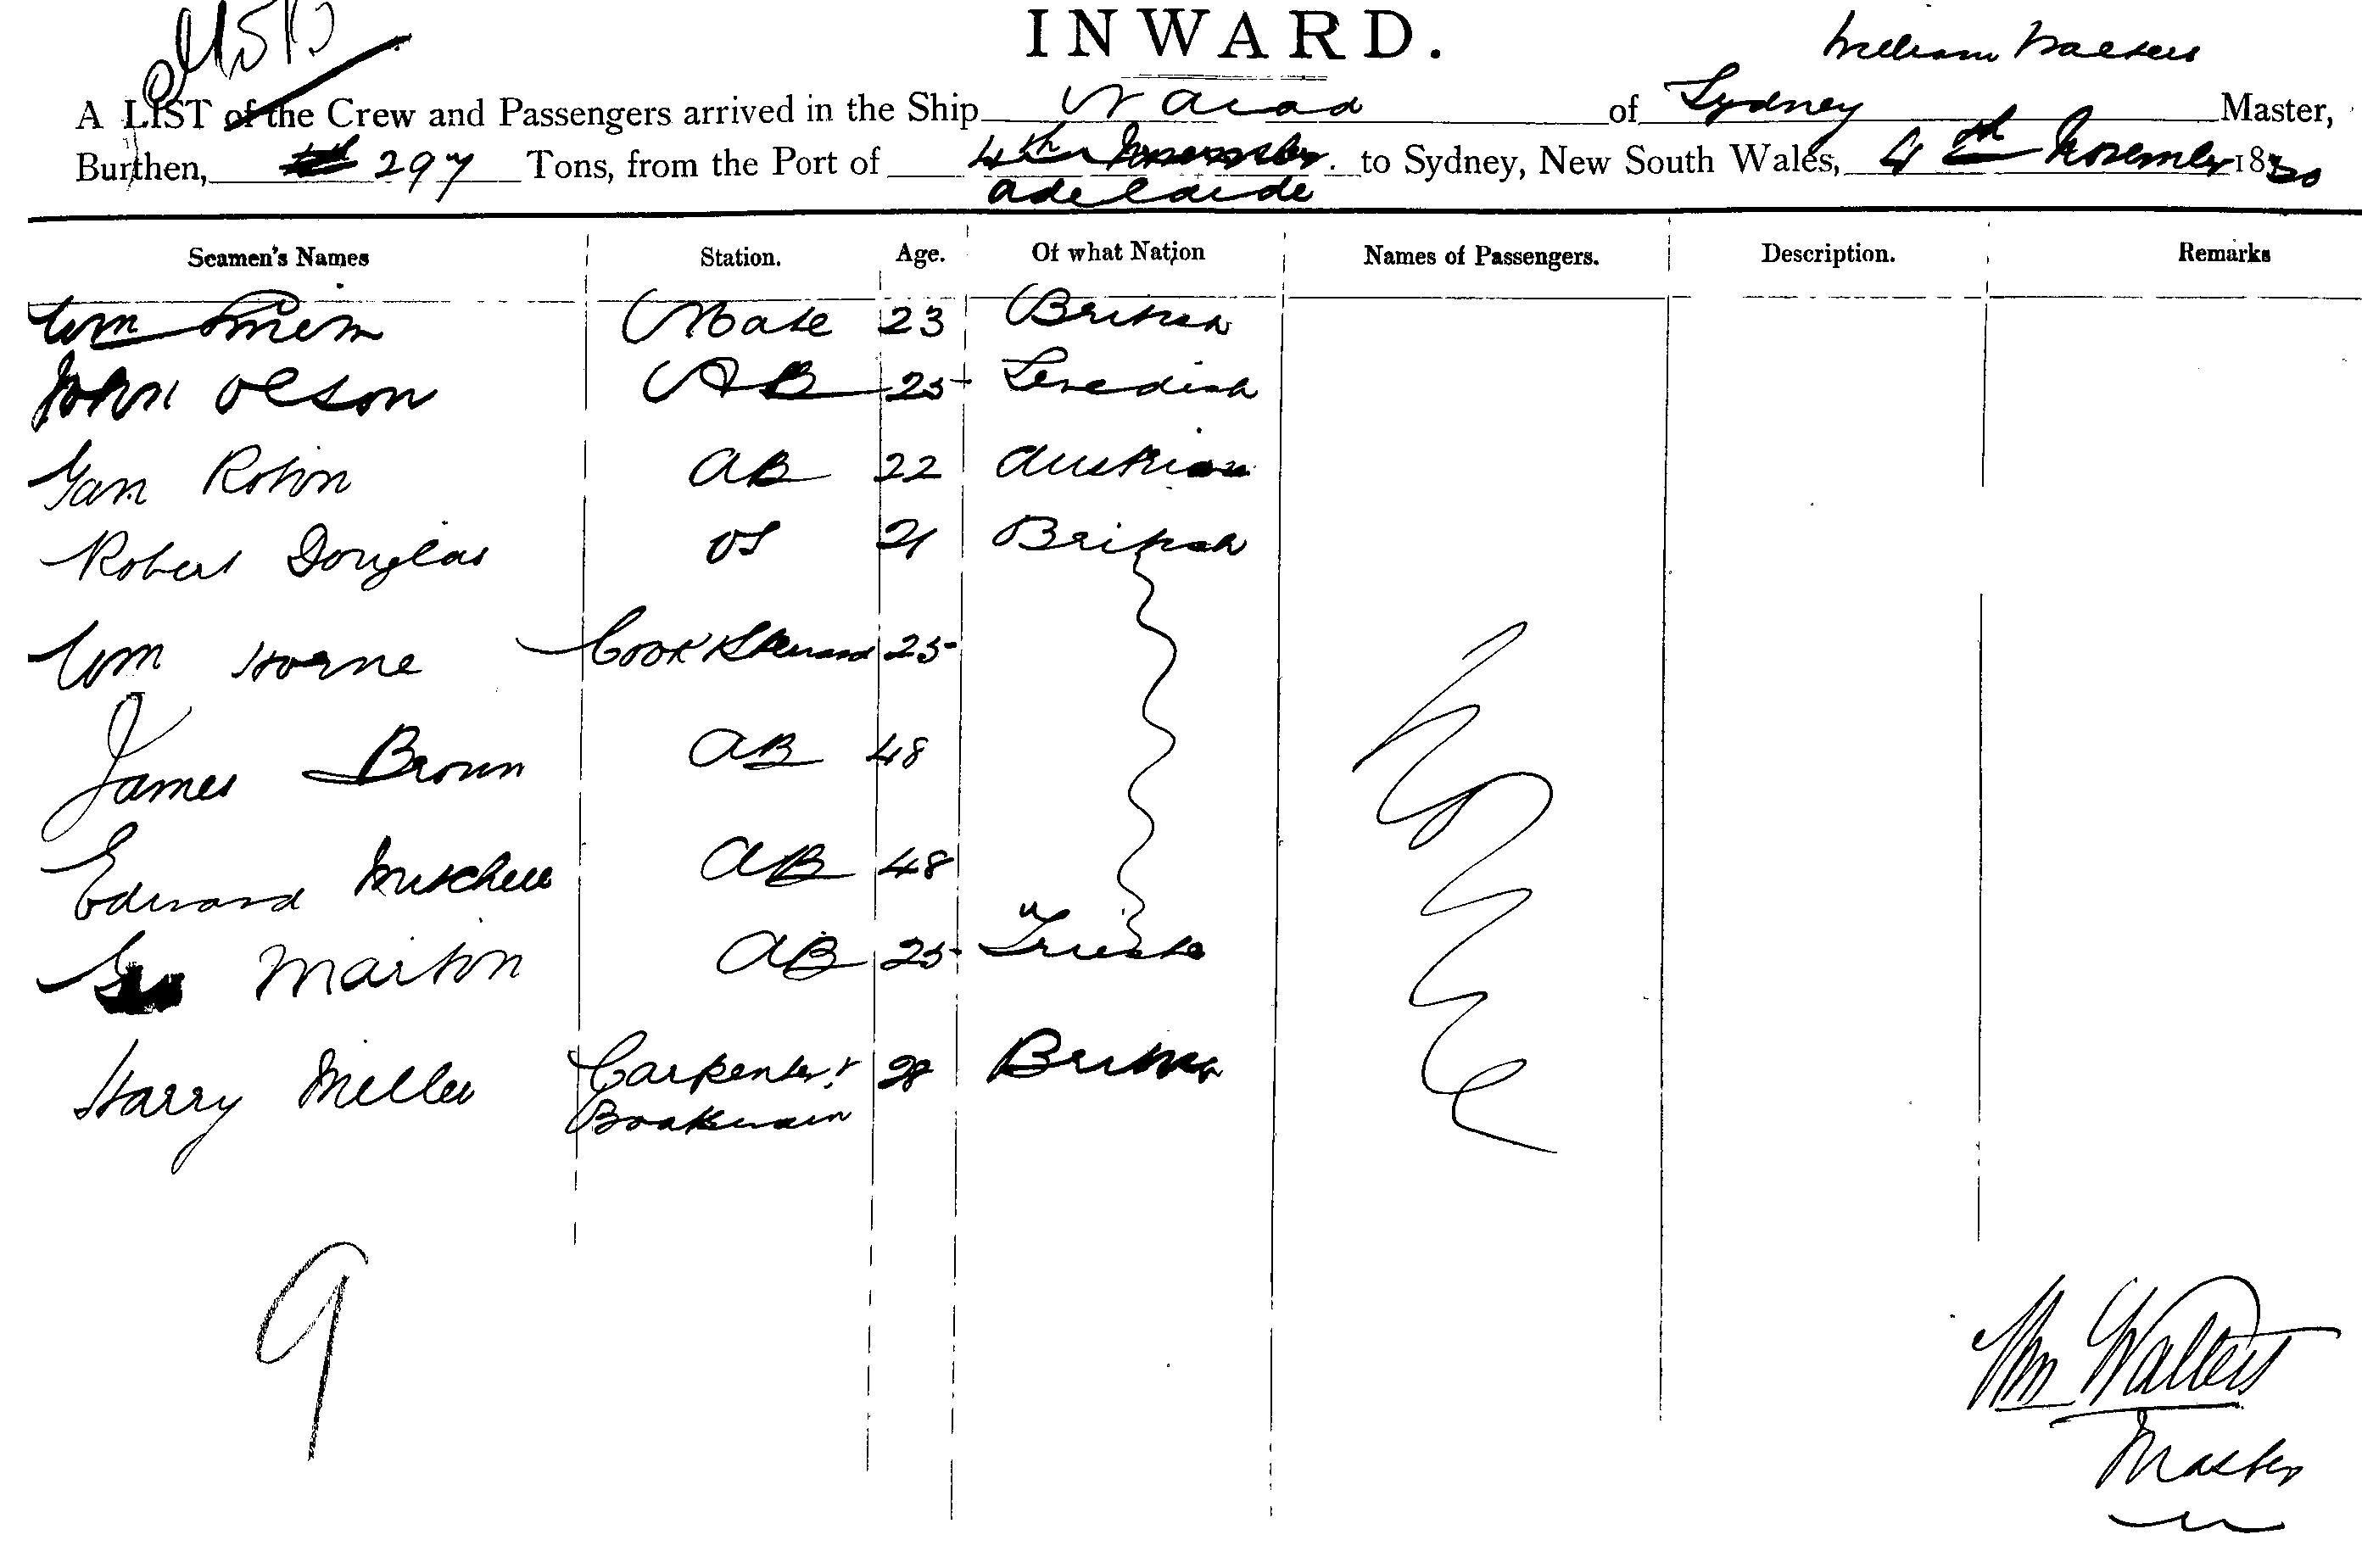 INWARD.
William Walters
A LIST of the Crew and Passengers arrived in the Ship Naiad of Sydney Master,
Burthen, 297 Tons, from the Port of 4th November to Sydney, New South Wales, 4th November 18
adelaide
Seamen's Names Station. Age. Of what Nation Names of Passengers. Description. Remarks
Wm Mate 23 British
John Olson AB 25 Swedish
Robin AB 22 Austrian
Robert Douglas OS 21 British
Wm Horne Cook & Steward 25
James Brown AB 48
Edward Mitchell AB 48
Martin AB 25 Trieste
Harry Miller Carpenter & 28 British
Boatswain
9
Wm Walters
Master